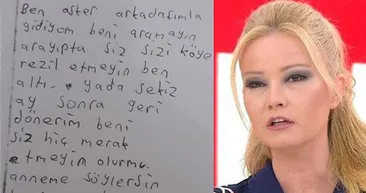 Ben asker arkadaşımla
gidiyom beni aramayın
arayıpta siz sizi köye
rezil etmeyin ben
altı yada sekiz
ay sonra geri
dönerim beni
siz hiç merak
etmeyin olurmu
anneme söylersin